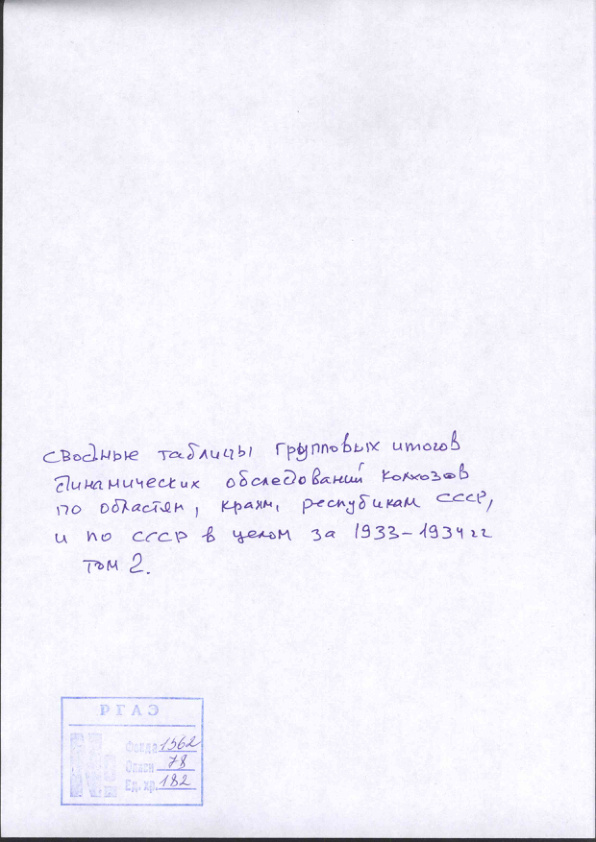 сводные таблицы групповых итогов
динамических обследований колхозов
по областям, краям, республикам СССР,
и по СССР в целом за 1933-1934 гг
том 2.
РГАЭ
№
Фонда 1562
Описи 78
Ед. хр. 182